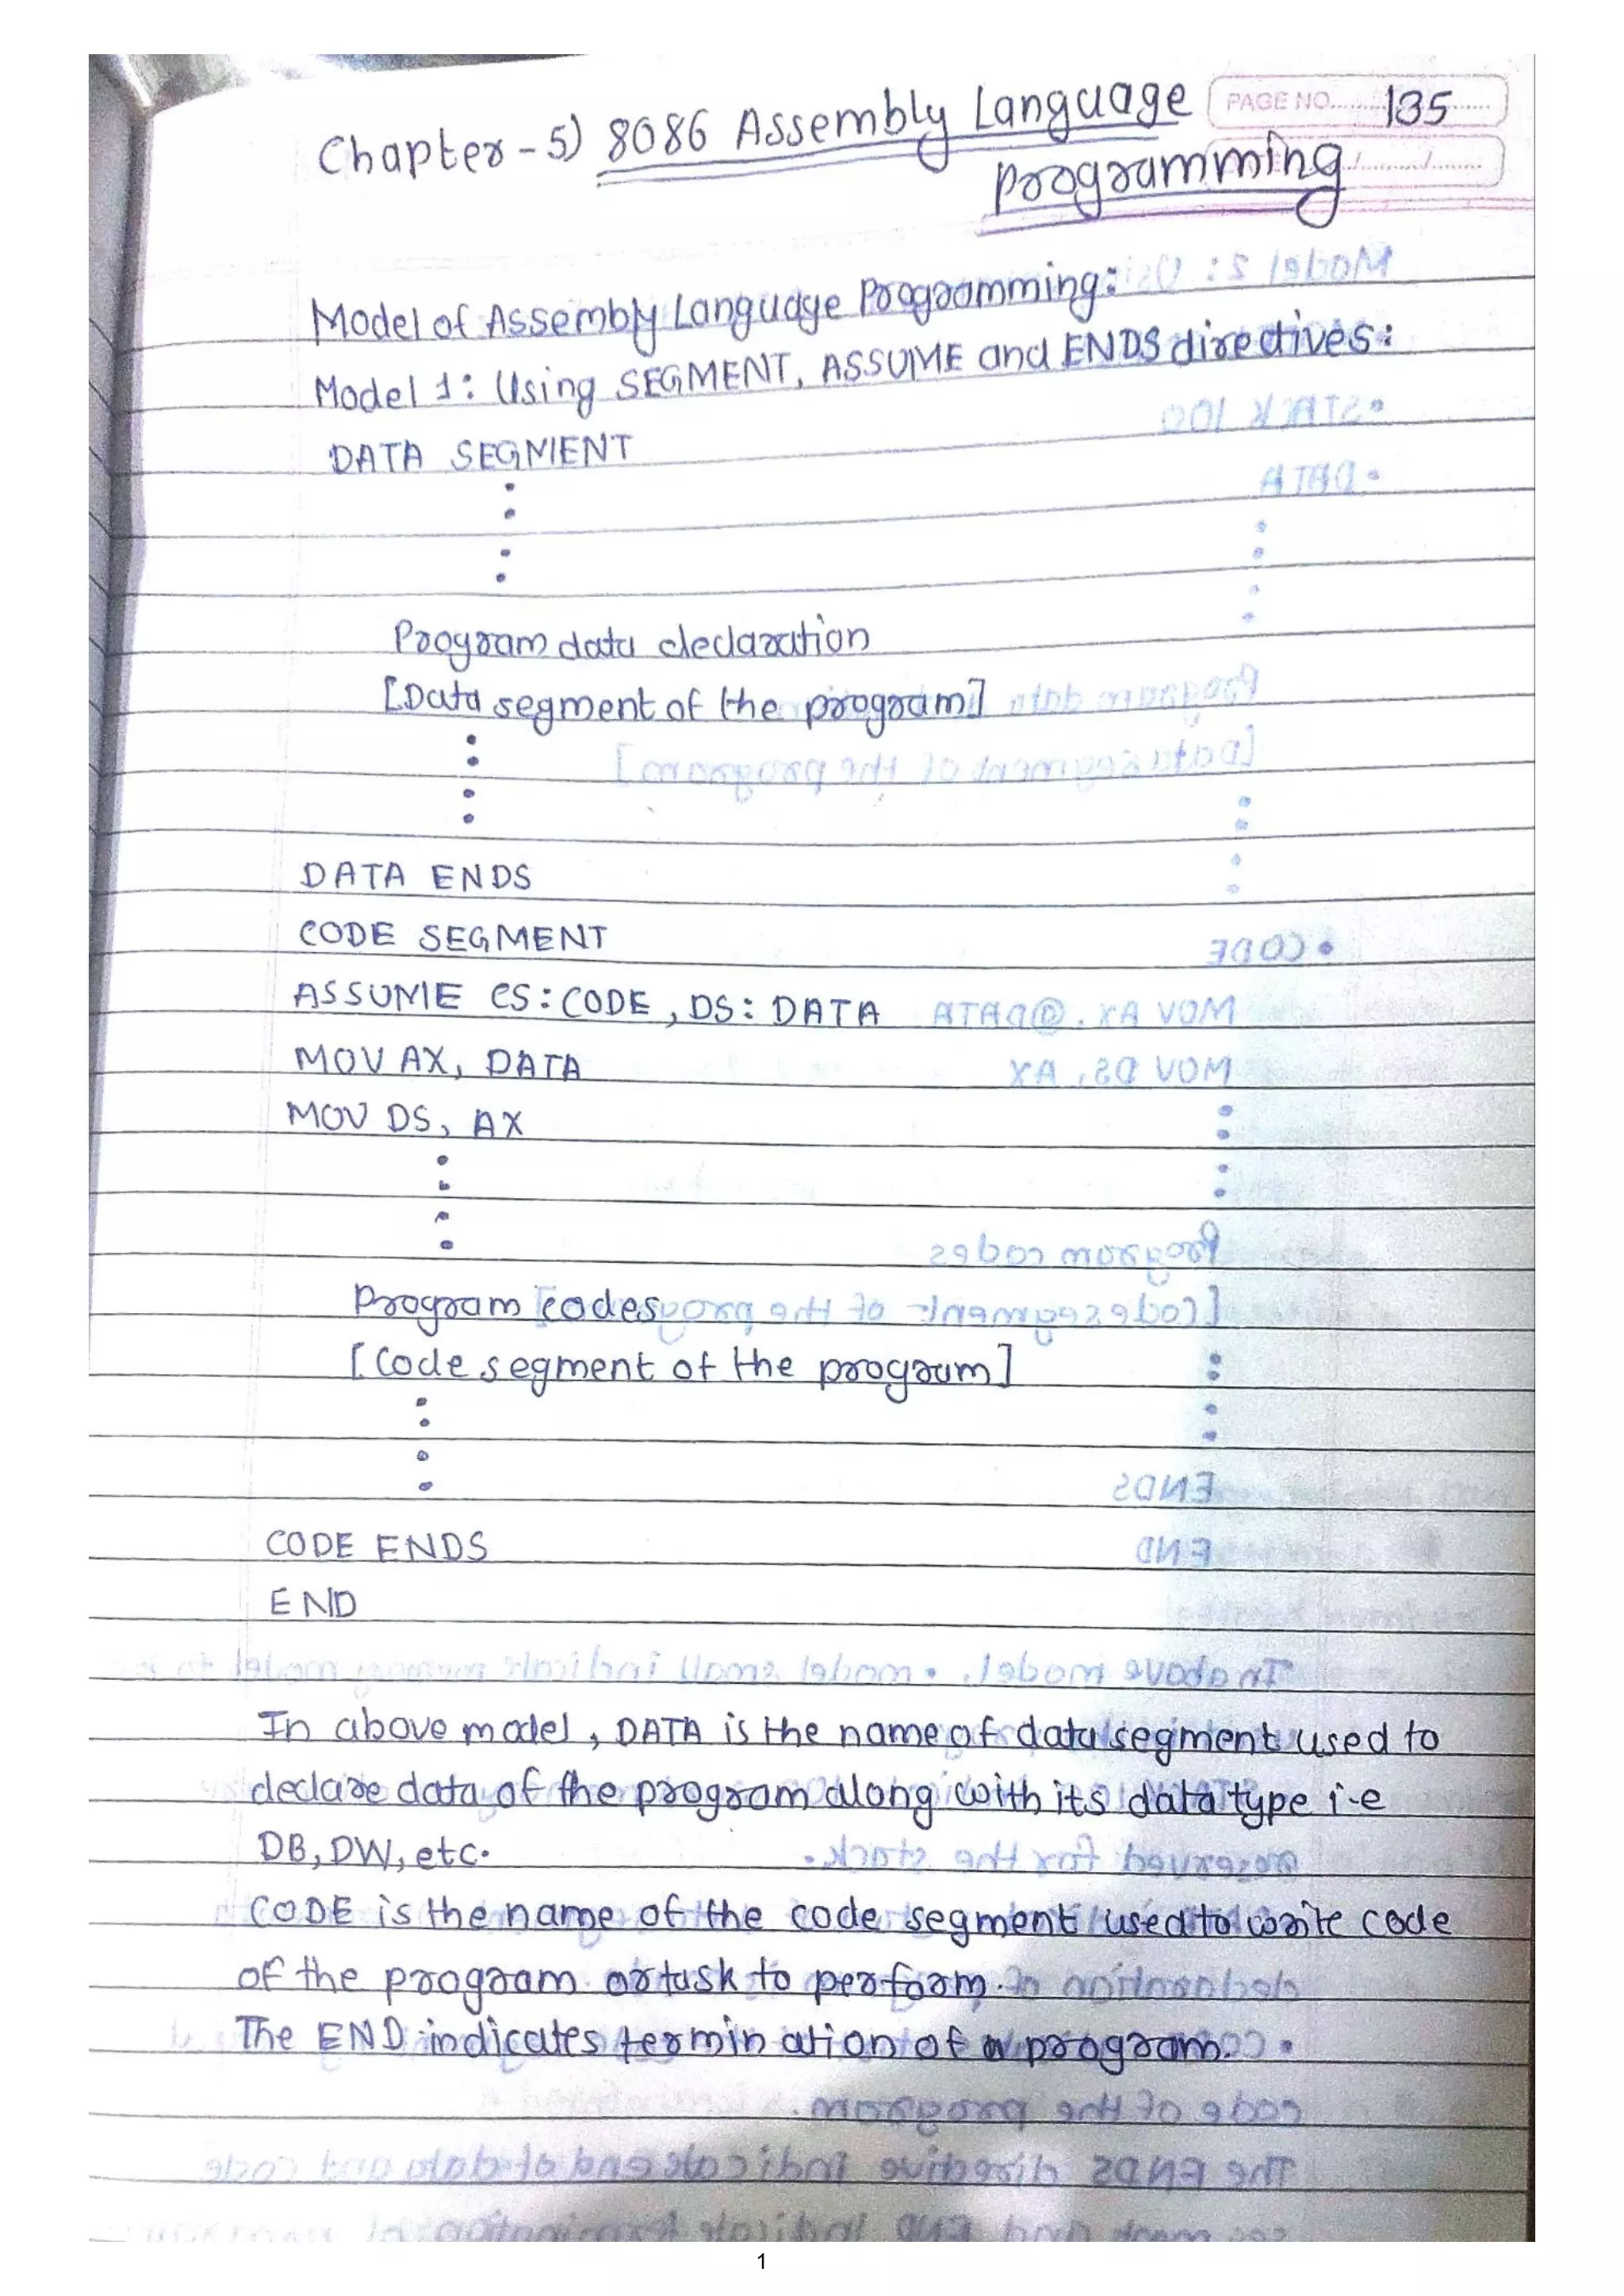 PAGE NO. 135
Chapter-5) 8086 Assembly Language
Programming
Model of Assembly Language Programming:
Model 1: Using SEGMENT, ASSUME and ENDS directives:
DATA SEGMENT
Program data declaration
[Data segment of the program]
DATA ENDS
CODE SEGMENT
ASSUME CS:CODE, DS: DATA
MOV AX, DATA
MOV DS, AX
Program codes
[Code segment of the program]
CODE ENDS
END
In above model, DATA is the name of data segment used to
declare data of the program along with its data type i.e
DB, DW, etc.
CODE is the name of the code segment used to write code
of the program or task to perform.
The END indicates termination of a program.
1